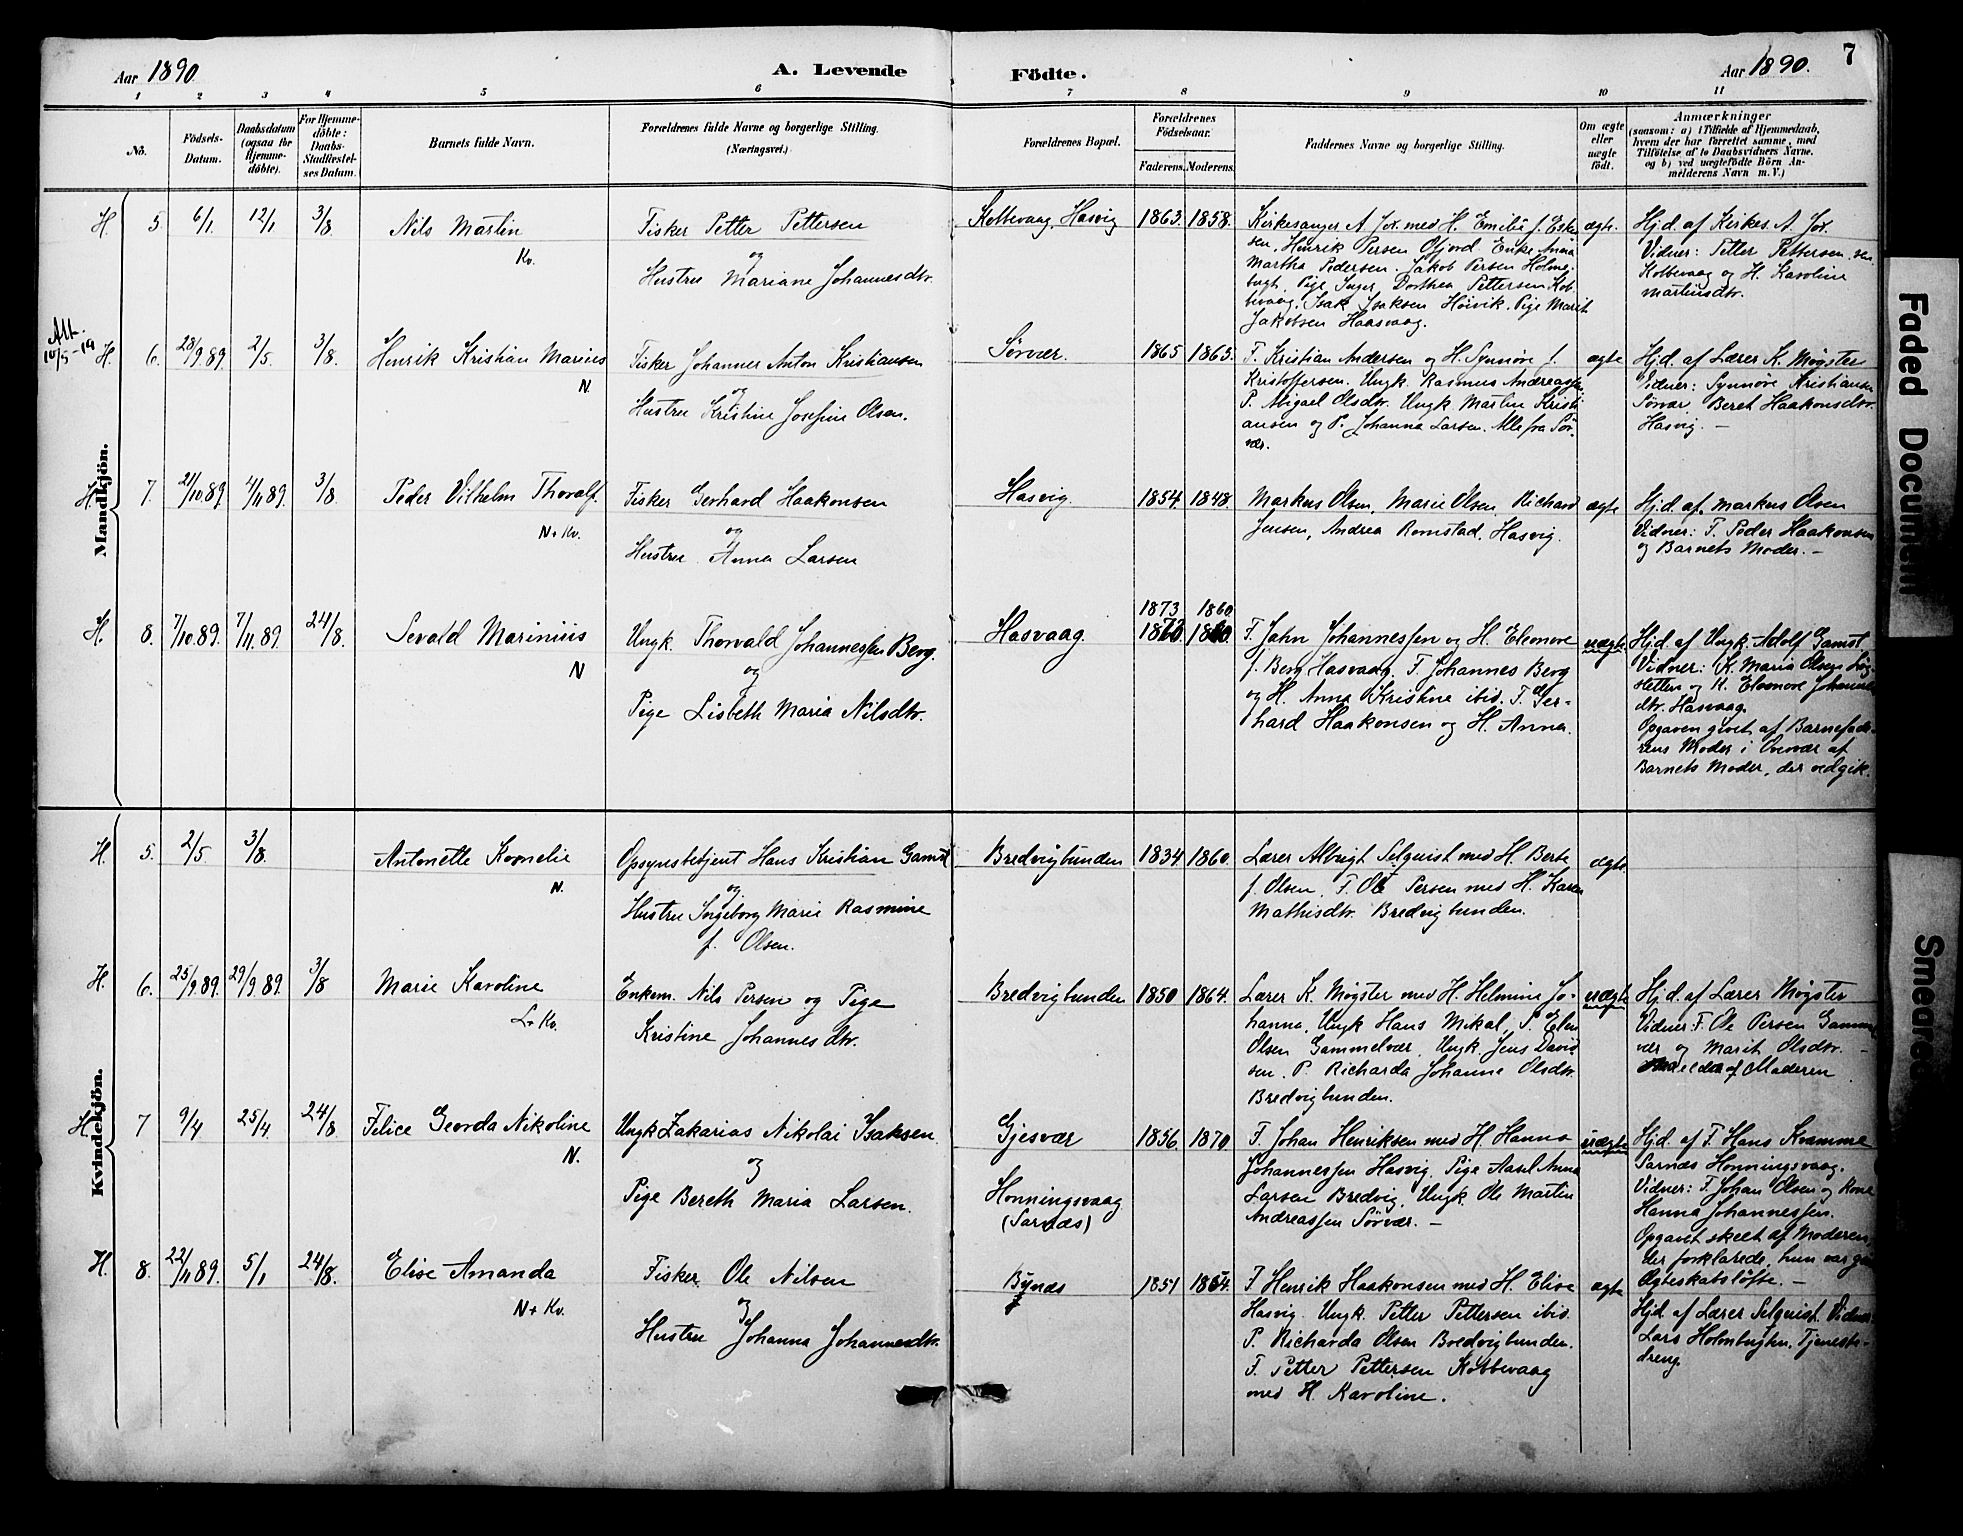 Aar 1890. A. Levende Födte. Aar 1890. 7
1 2 3 4 5 6 7 8 9 10 11
No.
Födsels-
Datum.
Daabsdatum
(ogsaa for
Hjemme-
döbte).
For Hjemme-
döbte:
Daabs-
Stadfæstel-
ses Datum.
Barnets fulde Navn.
Forældrenes fulde Navne og borgerlige Stilling.
(Næringsvei.)
Forældrenes Bopæl.
Forældrenes
Födselsaar.
Faderens. Moderens.
Faddernes Navne og borgerlige Stilling.
Om ægte
eller
uægte
födt.
Anmærkninger
(saasom: a) i Tilfælde af Hjemmedaab,
hvem der har forrettet samme, med
Tilföielse af to Daabsvidners Navne.
og b) ved uægtefödte Börn An-
melderens Navn m. V.)
Mandkjön.
H. 5 6/1 12/1 3/8 Nils Martin
Kv.
Fisker Petter Pettersen
og
Hustru Mariane Johannesdtr.
Kobbevaag, Hasvig 1863 1858
Kirkesanger A. Jox. med H. Emilie f. Eske
sen, Henrik Persen Ofjord. Enke Anna
Martha Pedersen. Jakob Persen Holme
bugt, Pige Inger Dorthea Pettersen Kob
bevaag, Isak Isaksen Hoivik. Pige Marit
Jakobsen Haasvaag.
ægte.
Hjd. af Kirkes. A. Jox.
Vidner: Petter Pettersen sen.
Kobbevaag og H. Karoline
Martinsdtr.
Att.
10/5-19
H. 6. 28/9.89 2/5. 3/8. Henrik Kristian Marius
N.
Fisker Johannes Anton Kristiansen
og
Hustru Kristine Josefine Olsen.
Sørvær. 1865 1865.
F. Kristian Andersen og H. Synnøve f.
Kristoffersen. Ungk. Rasmus Andreassen
P. Abigael Olsdtr. Ungk. Martin Kristi
ansen og P. Johanna Larsen. Alle fra Sør
vær.
ægte
Hjd. af Lærer K. Møgster
Vidner: Synnøve Kristiansen
Sørvær, Beret Haakonsdtr.
Hasvig. -
H. 7. 21/10.89 4/11.89. 3/8. Peder Vilhelm Thoralf.
N + Kv.
Fisker Gerhard Haakonsen
og
Hustru Anna Larsen
Hasvig. 1854. 1848.
Markus Olsen, Marie Olsen Richard
Jensen, Andrea Romstad, Hasvig.
ægte
Hjd. af Markus Olsen
Vidner: F. Peder Haakonsen
og Barnets Moder. -
H. 8. 7/10.89. 7/11.89. 24/8. Sevald Marinius
N
Ungk. Thorvald Johannessen Berg.
og
Pige Lisbeth Maria Nilsdtr.
Hasvaag 1873 1860
F. Jahn Johannessen og H. Eleonore
f. Berg Hasvaag. F. Johannes Berg
og H. Anna Kristine ibid. F. Ger-
hard Haakonsen og H. Anna.
uægte
Hjd. af Ungk. Adolf Gamst
Vidner: K. Maria Olsen
og H. Eleonore Johannes
dtr. Hasvaag.
Opgaven givet af Barnefade-
rens Moder i Overvær af
Barnets Moder, der vedgik.
Kvindekjön.
H. 5. 2/5 3/8. Antonette Kornelie
N.
Opsynsbetjent Hans Kristian Gamst
og
Hustru Ingeborg Marie Rasmine
f. Olsen.
Bredvigbunden 1834 1860.
Lærer Albrigt Selquist med H. Berte
f. Olsen, F. Ole Persen med H. Karen
Mathisdtr. Bredvigbunden.
ægte.
H. 6. 25/9.89. 29/9.89. 3/8 Marie Karoline
L + Kv.
Enkem. Nils Persen og Pige
Kristine Johannesdtr.
Bredvigbunden 1850 1864.
Lærer K. Møgster med H. Helmine Jo-
hanna, Ungk Hans Mikal, P. Elen
Olsen Gammelvær, Ungk. Jens David
sen, P. Richarda Johanne Olsdtr.
Bredvigbunden.
uægte
Hjd. af Lærer Møgster
Vidner: F. Ole Persen Gammel
vær og Marit Olsdtr. -
Anmeldt af Moderen
H. 7 9/4 25/4. 24/8 Felice Georda Nikoline
N.
Ungk Zakarias Nikolai Isaksen
og
Pige Bereth Maria Larsen.
Gjesvær
Honningsvaag
(Sarnæs)
1856. 1870
F. Johan Henriksen med H. Hanna
Johannessen Hasvig. Pige Aasel Anna
Larsen Bredvig, Ungk. Ole Martin
Andreassen Sørvær. -
uægte
Hjd. af F. Hans Kvamme
Sarnæs Honningsvaag.
Vidner: F. Johan Olsen og Kone
Hanna Johannessen.
Opgavet skeet af Moderen
der forklarede, hun var
Ægteskabsløfte. -
H. 8. 22/11.89. 5/1 24/8. Elise Amanda
N + Kv.
Fisker Ole Nilsen
og
Hustru Johanna Johannesdtr.
Bynæs 1851 1854.
F. Henrik Haakonsen med H. Elise
Hasvig. Ungk. Petter Pettersen ibid.
P. Richarda Olsen Bredvigbunden.
F. Petter Pettersen Kobbevaag
med H. Karoline.
ægte
Hjd. af Lærer Selquist. Vidner:
Lars Holmbugten, Tjeneste-
dreng.
Faded Document
Smeared